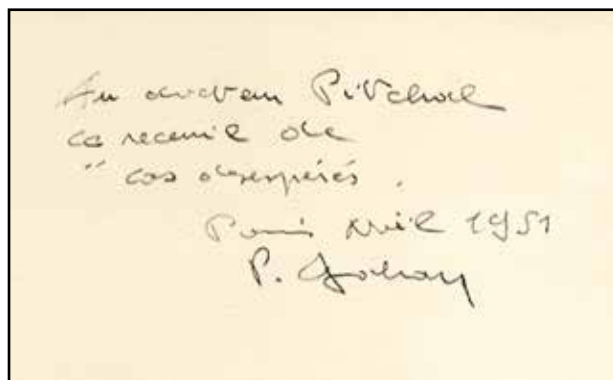 Au docteur Pitchal
ce recueil de
" cas désespérés.
Paris Noël 1951
P.